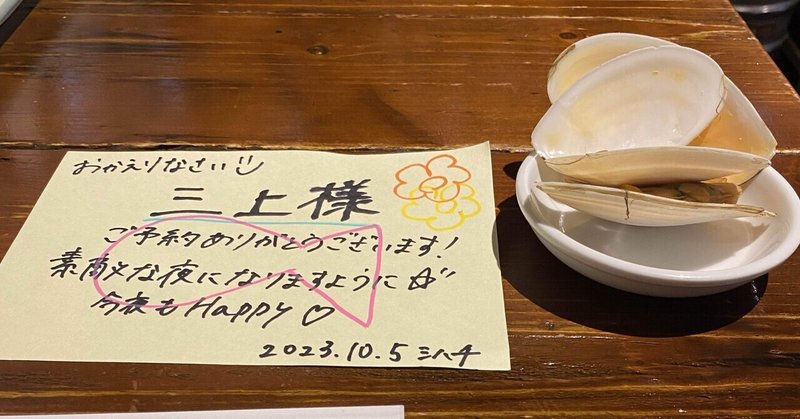 おかえりなさい
三上様
ご予約ありがとうございます!
素敵な夜になりますように
今夜もHappy♡
2023.10.5 ミハチ